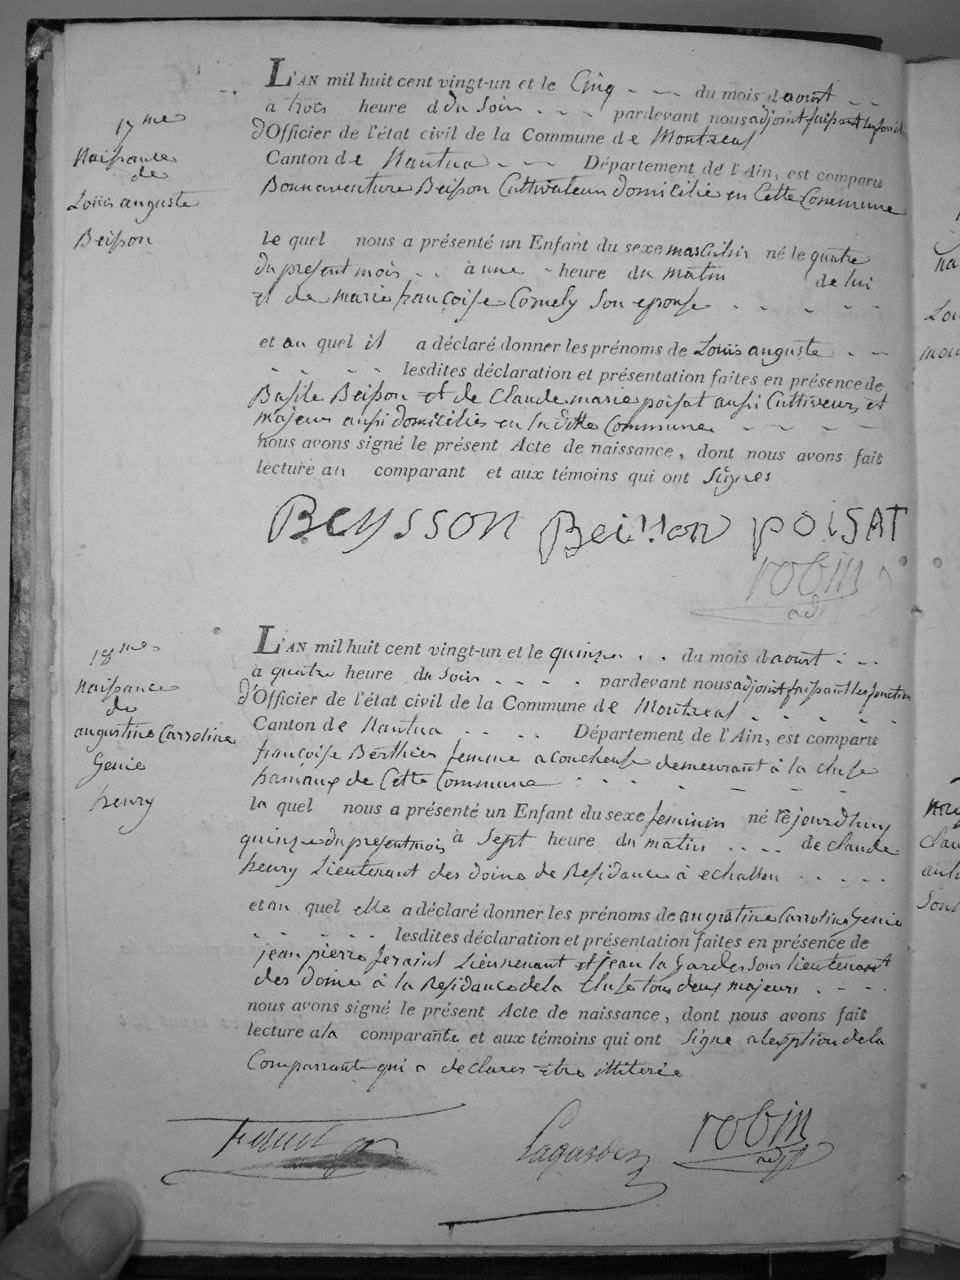 17me
Naissance
de
Louis auguste
Beisson
L'AN mil huit cent vingt-un et le Cinq du mois daoust
a trois heure d du soir pardevant nous adjoint faisant les fonct
d'Officier de l'état civil de la Commune de Montreal
Canton de Nantua Département de l'Ain, est comparu
Bonnaventure Beisson Cultivateur domicilié en Cette Commune
le quel nous a présenté un Enfant du sexe masculin né le quatre
du present mois à une heure du matin de lui
et de marie françoise Cornely son epouse
et au quel il a déclaré donner les prénoms de Louis auguste
lesdites déclaration et présentation faites en présence de
Basile Beisson et de Claude marie poisat aussi Cultiveurs et
majeurs aussi domiciliés en la ditte Commune
nous avons signé le présent Acte de naissance, dont nous avons fait
lecture au comparant et aux témoins qui ont signés
BEYSSON Beisson POISAT
robin
adj
18me
Naissance
de
augustine Carroline
Genie
henry
L'AN mil huit cent vingt-un et le quinze du mois daoust
à quatre heure du soir pardevant nous adjoint faisant les fonction
d'Officier de l'état civil de la Commune de Montreal
Canton de Nantua Département de l'Ain, est comparu
françoise Berthier femme acoucheuse demeurant à la cluse
hamaux de Cette Commune
la quel nous a présenté un Enfant du sexe feminin né cejourdhuy
quinze du present mois à sept heure du matin de claude
henry Lieutenant des doine de Residance à echallon
et au quel elle a déclaré donner les prénoms de augustine Carroline Genie
lesdites déclaration et présentation faites en présence de
jean pierre Lieutenant et jean la Gardes sous lieutenant
des doine à la Residance de la Cluse tous deux majeurs
nous avons signé le présent Acte de naissance, dont nous avons fait
lecture a la comparante et aux témoins qui ont Signé a leption de la
Comparante qui a declarer etre illiterée
Lagardes robin
adj